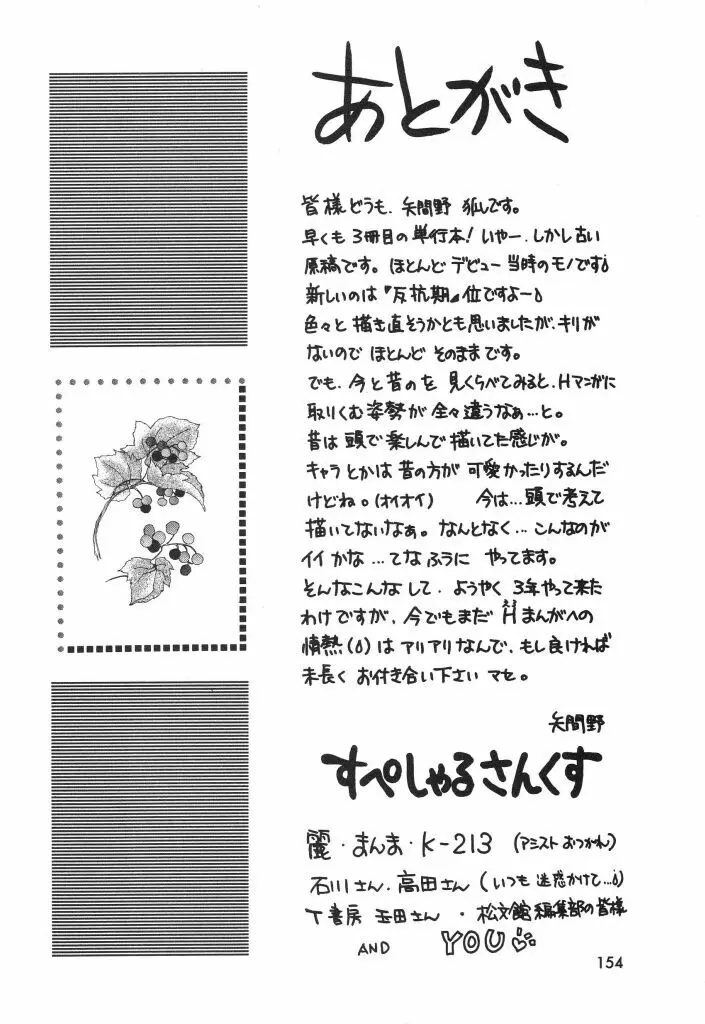 あとがき
皆様どうも、矢間野 狐です。
早くも3冊目の単行本!いやー、しかし古い
原稿です。ほとんどデビュー当時のモノです
新しいのは『反抗期』位ですよー
色々と描き直そうかとも思いましたが、キリが
ないのでほとんどそのままです。
でも、今と昔のを見くらべてみると、Hマンガに
取りくむ姿勢が全々違うなぁ…と。
昔は頭で楽しんで描いてた感じが。
キャラとかは昔の方が可愛かったりするんだ
けどね。(オイオイ) 今は…頭で考えて
描いてないなぁ。なんとなく…こんなのが
イイかな…てなふうに やってます。
そんなこんなして、ようやく3年やって来た
わけですが、今でもまだHまんがへの
情熱()はアリアリなんで、もし良ければ
末長くお付き合い下さいマセ。
矢間野
すぺしゃるさんくす
麗・まんま・K-213 (アシストおつかれ)
石川さん、高田さん(いつも迷惑かけて…)
T書房 玉田さん・松文館編集部の皆様
AND YOU
154